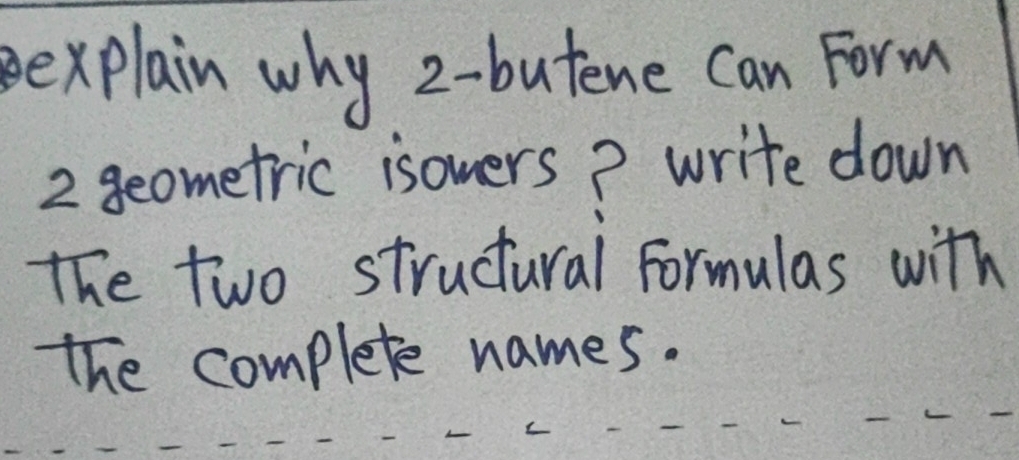 explain why 2-butene can form
2 geometric isomers? write down
the two structural formulas with
the complete names.